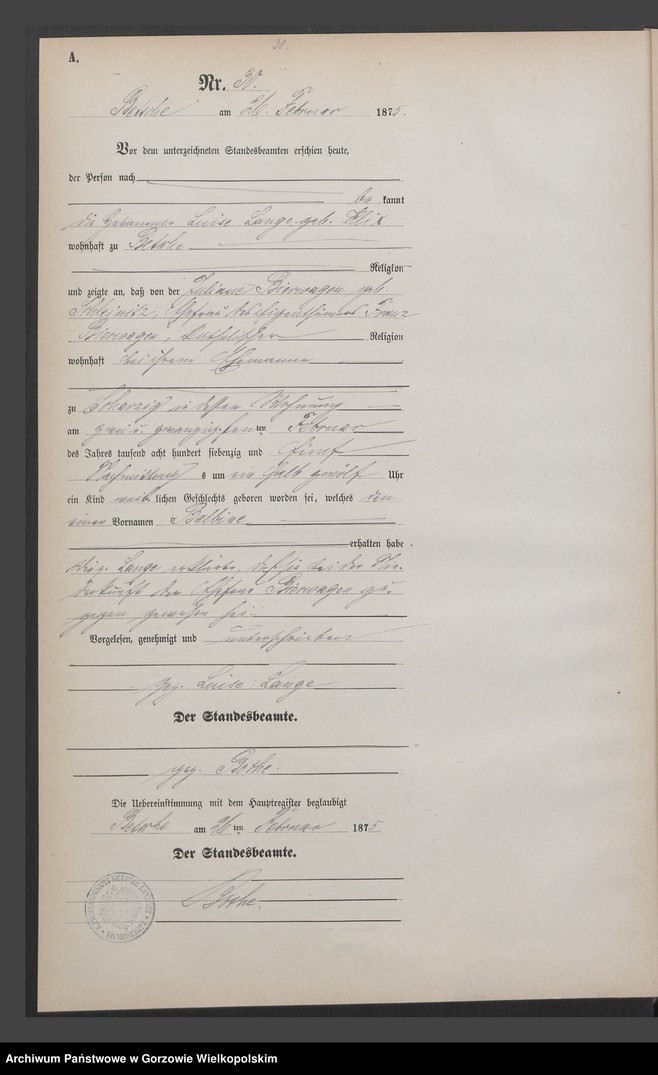 30.
A.
Nr. 30.
Betsche am 26. Februar 1875.
Vor dem unterzeichneten Standesbeamten erschien heute,
der Person nach
be kannt
die Hebamme Luise Lange geb.
wohnhaft zu Betsche
Religion
und zeigte an, daß von der Juliane Bierwagen geb.
Schleinitz, Ehefrau des Eigenthümers Franz
Bierwagen, katholischer Religion
wohnhaft bei ihrem Ehemanne
zu Scharzig in dessen Wohnung
am zwei u. zwanzigsten ten Februar
des Jahres tausend acht hundert siebenzig und fünf
Nachmittags s um ein halb zwölf Uhr
ein Kind weib lichen Geschlechts geboren worden sei, welches den
einen Vornamen Balbine
erhalten habe.
Die p. Lange erklärte, daß sie bei der Nie-
derkunft der Ehefrau Bierwagen zu-
gegen gewesen sei.
Vorgelesen, genehmigt und unterschrieben
gez. Luise Lange
Der Standesbeamte.
gez. Bothe.
Die Uebereinstimmung mit dem Hauptregister beglaubigt
Betsche am 26 ten Februar 1875
Der Standesbeamte.
Bothe.
Archiwum Państwowe w Gorzowie Wielkopolskim